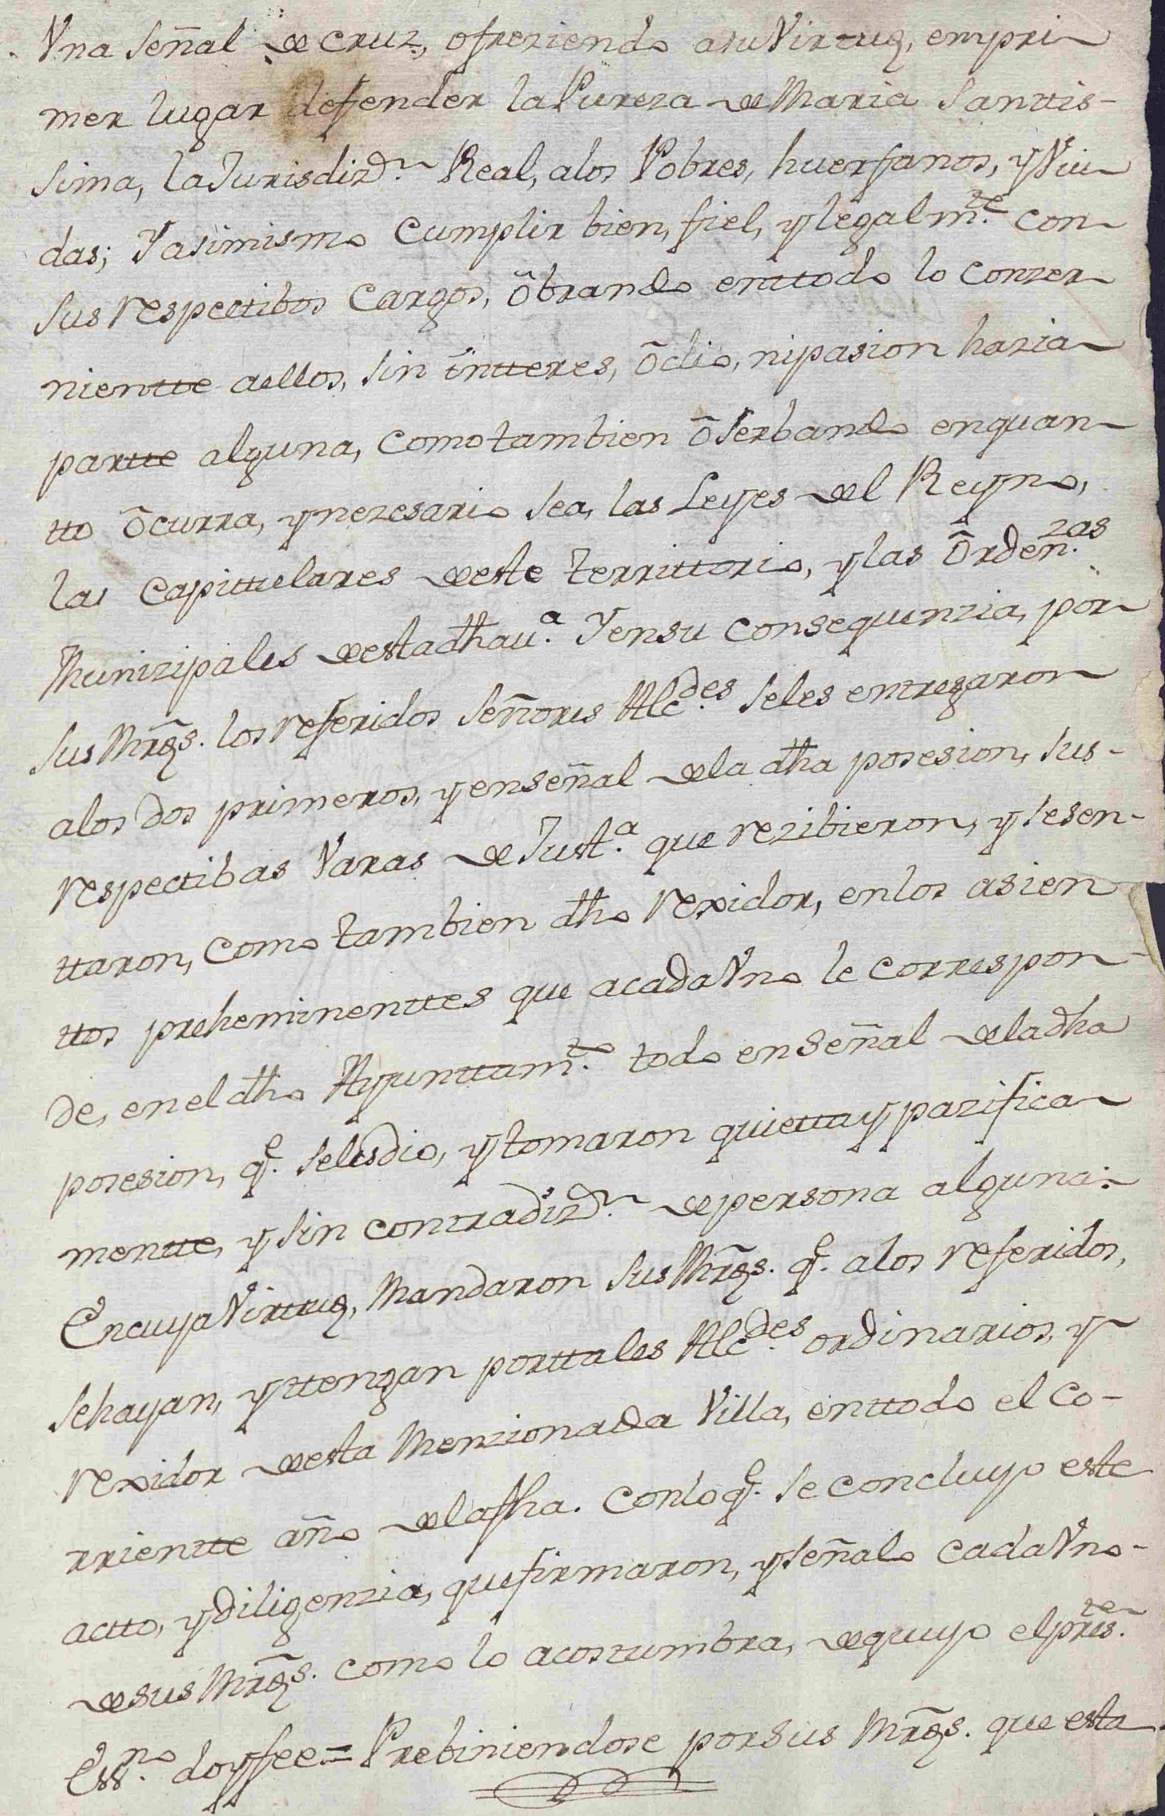 Vna Señal de cruz, ofreziendo a su Virtud, em pri
mer lugar defender la Pureza de Maria Santtis-
sima, la Jurisdizn. Real, a los Pobres, huerfanos, y Viu
das; Y asimismo Cumplir bien, fiel, y legalmte. con
sus respecttibos Cargos, õbrando en ttodo lo conzer
nientte a ellos, sin ĩntteres, õdio, ni pasion hazia
partte alguna, como tambien õserbando en quan
tto õcurra, y nezesario sea, las Leyes del Reyno,
las Capittulares deste territtorio, y las õrdenzas.
Munizipales desta dha va. Y en su consequenzia, por
sus Mrds. los referidos Señores Alcdes. se les entregaron
a los dos primeros, y en señal de la dha posesion, sus-
respecttibas Varas de Justa. que rezibieron, y se sen-
ttaron, como tambien dho rexidor, en los asien
ttos preheminenttes que a cada Vno le correspon-
de, en el dho Ayunttamto. todo en Señal de la dha
posesion, qe. se les dio, y tomaron quietta y pazifica
mentte, y sin contradizn. de persona alguna:
En cuya Virttud, Mandaron sus Mrds. qe. a los referidos,
se hayan, y ttengan por ttales Alcdes. ordinarios, y
rexidor desta Menzionada Villa, en ttodo el co-
rrientte año de la fha. Con lo qe. se concluyo este
actto, y diligenzia, que firmaron, y señalo cada Vno-
de sus Mrds. como lo acostumbra, de quyo el preste.
Essno. doy fee = Prebiniendose por sus Mrds. que esta